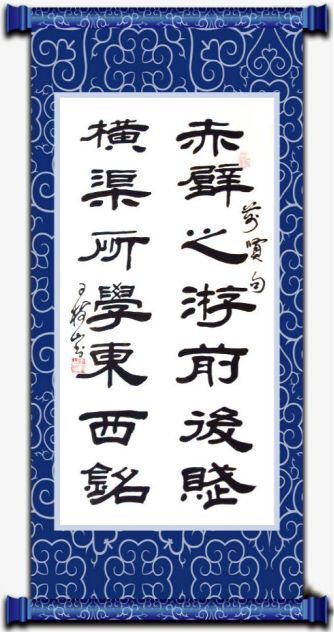 赤壁之游前後賦
前賢句
橫渠所學東西銘